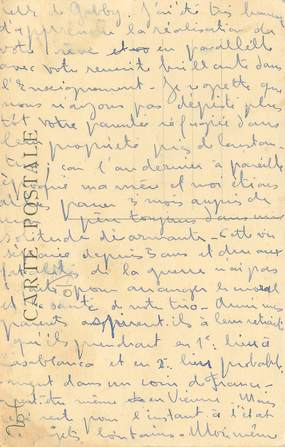 de Gabby. J'ai été très heureux
d'apprendre la réalisation de
votre rêve et en parallèle
avec votre réussite brillante dans
l'Enseignement - Je regrette que
nous n'ayons pas dépisté plus
tôt votre parenté réfugiée dans
la propriété près de
car l'an dernier à pareille
époque ma mère et moi étions
passer 3 mois auprès de
mon père toujours dans une
solitude désarmante - Cette
depuis 3 ans et demi aux
de la guerre n'ai pas
pour arranger le moral
et la santé de notre trio - aussi mes
parents aspirent-ils à leur retraite
qu'ils prendront en 1er lieu à
Casablanca et en 2e lieu probable-
ment dans un coin de France -
peut-être même en Vienne. Mais
ce n'est pour l'instant à l'état
projets lointains - Moi-même
CARTE POSTALE